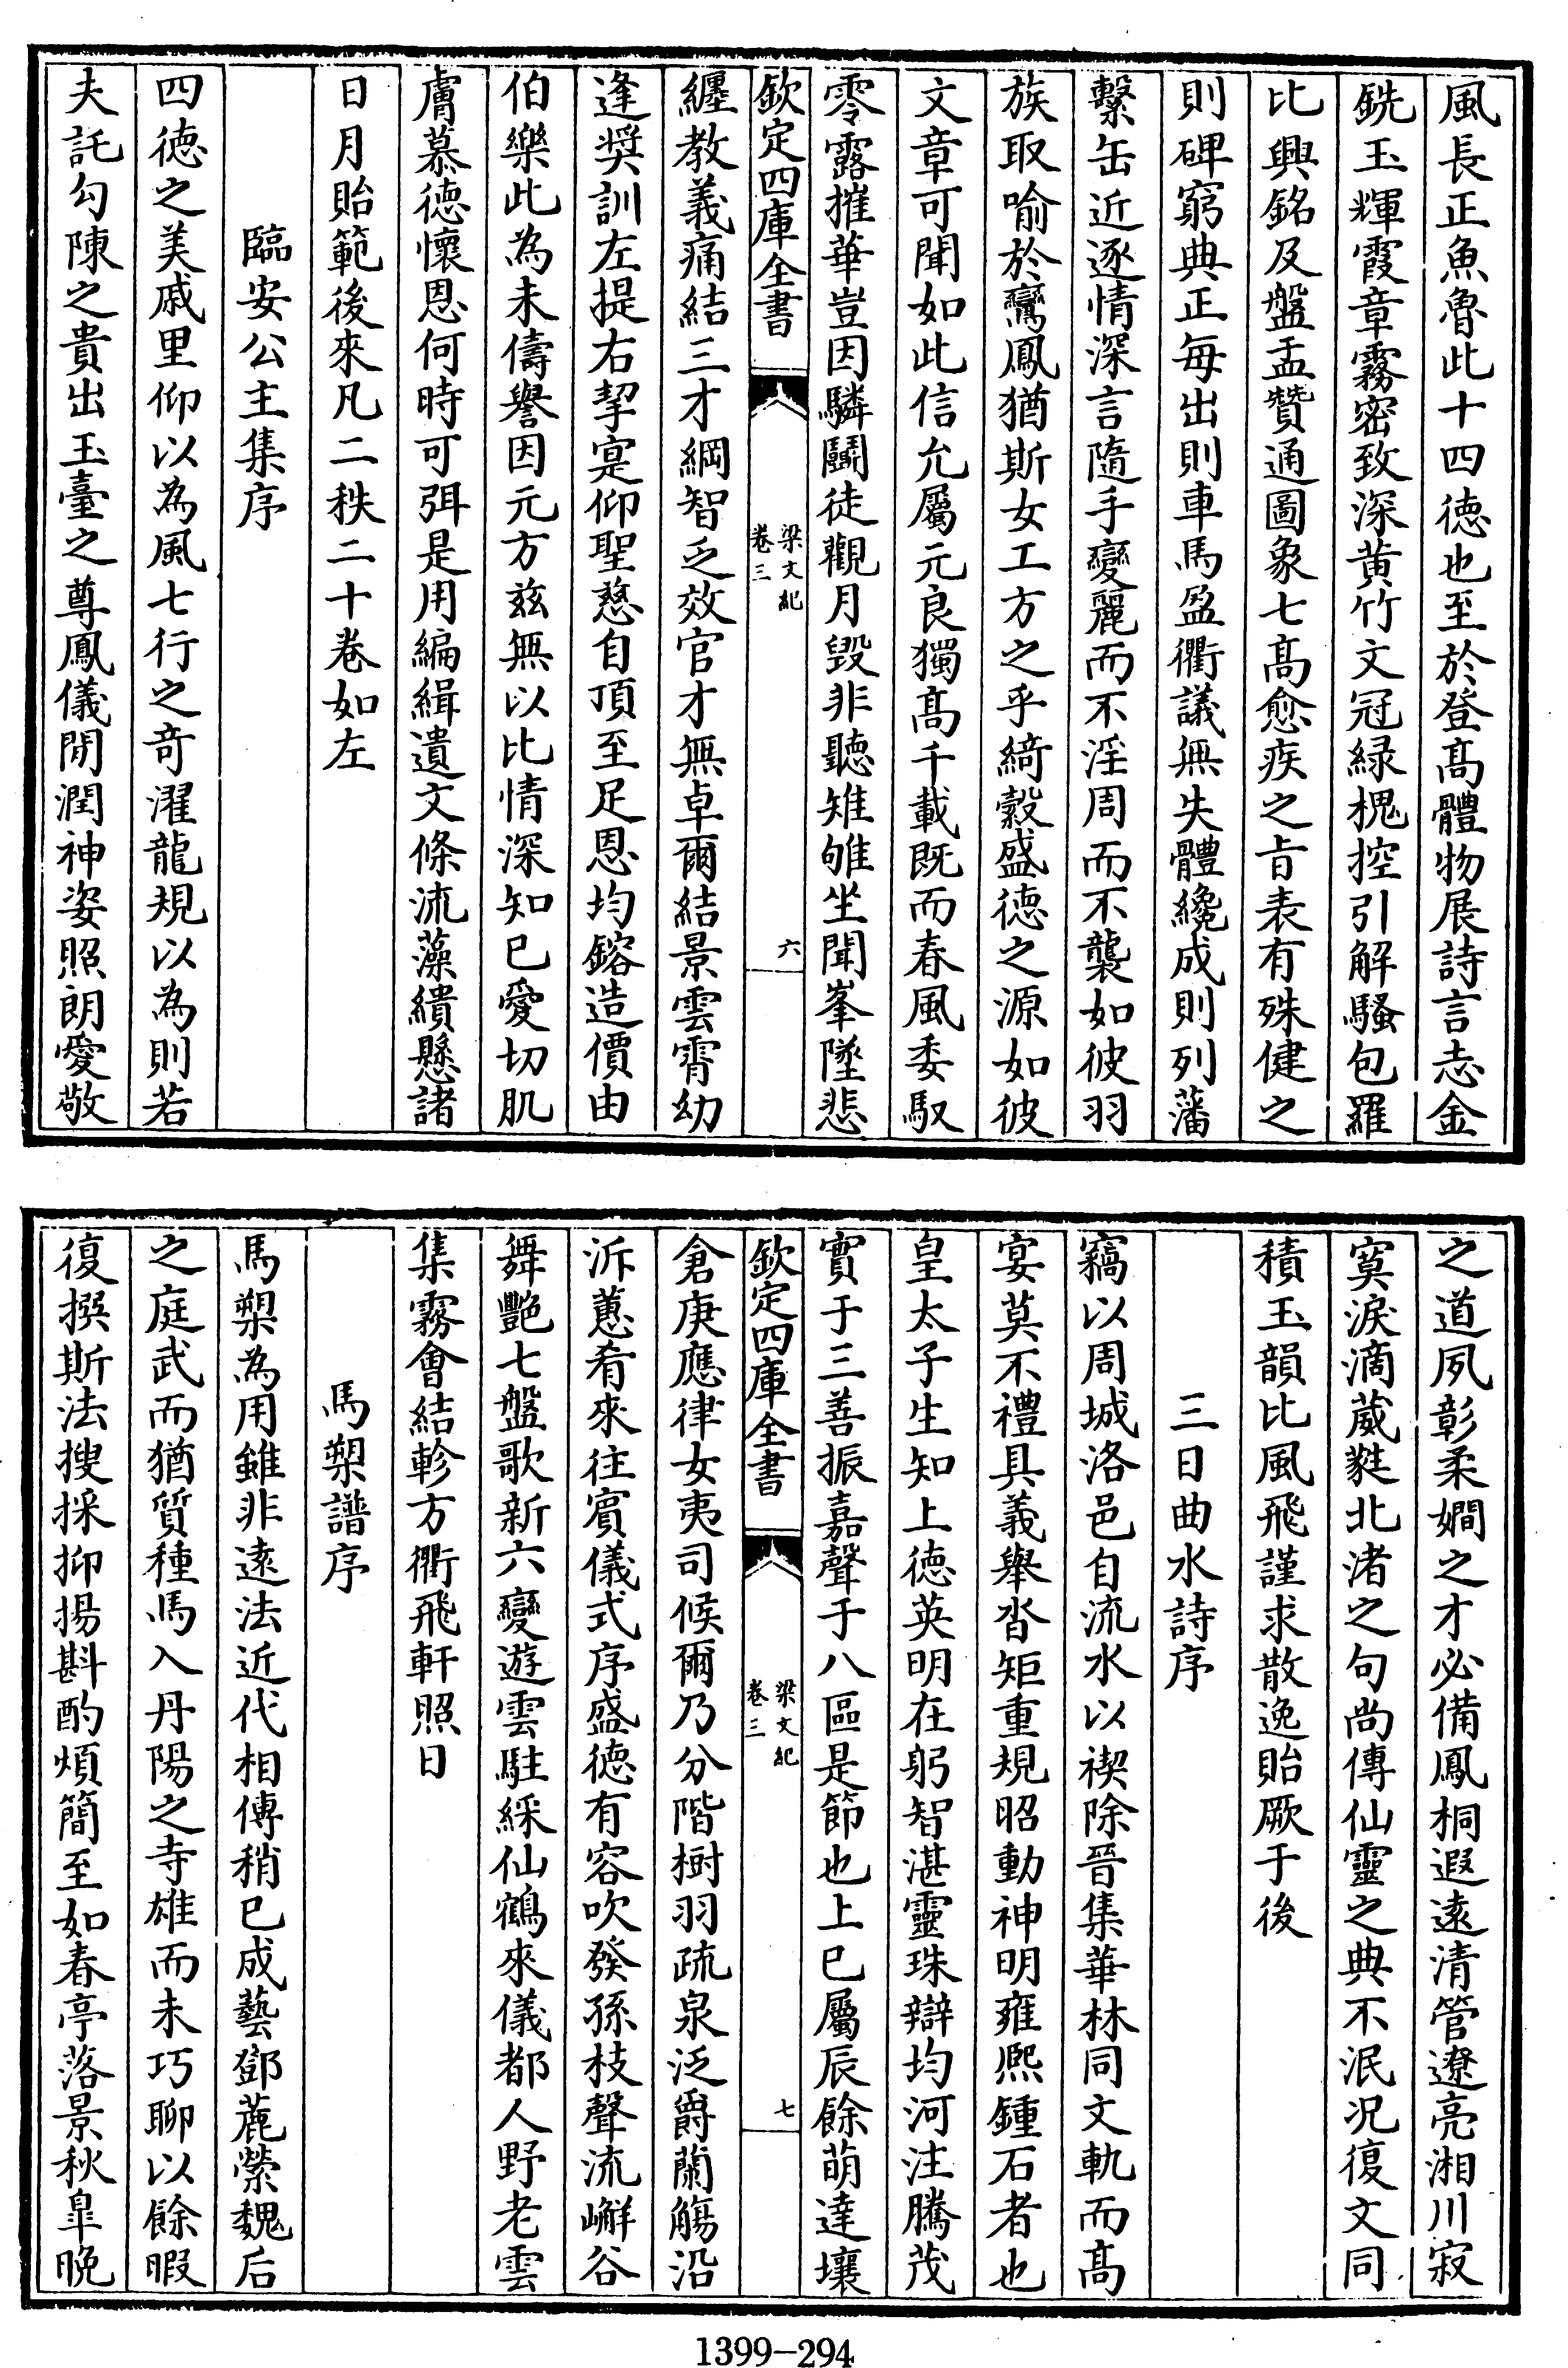 風長正魚魯此十四徳也至於登髙體物展詩言志金
銑玉輝霞章霧密致深黄竹文冠緑槐控引解騷包羅
比興銘及盤盂贊通圖象七髙愈疾之㫖表有殊健之
則碑窮典正每出則車馬盈衢議無失體纔成則列藩
繫缶近逐情深言隨手變麗而不淫周而不襲如彼羽
族取喻於鸞鳳猶斯女工方之乎綺縠盛徳之源如彼
文章可聞如此信允屬元良獨髙千載既而春風委馭
零露摧華豈因麟鬬徒觀月毁非聽雉雊坐聞峯墜悲
欽定四庫全書
梁文紀
卷三
六
纏教義痛結三才綱智乏效官才無卓爾結景雲霄幼
逢奨訓左提右挈寔仰聖慈自頂至足恩均鎔造價由
伯樂此為未儔譽因元方兹無以比情深知己愛切肌
膚慕徳懷恩何時可弭是用編緝遺文條流藻繢懸諸
日月貽範後來凡二秩二十卷如左
臨安公主集序
四徳之美戚里仰以為風七行之竒濯龍規以為則若
夫託勾陳之貴出玉臺之尊鳳儀閒潤神姿照朗愛敬
之道夙彰柔嫺之才必備鳳桐遐逺清管遼亮湘川寂
寞淚滴葳蕤北渚之句尚傳仙靈之典不泯况復文同
積玉韻比風飛謹求散逸貽厥于後
三日曲水詩序
竊以周城洛邑自流水以禊除晉集華林同文軌而髙
宴莫不禮具義舉沓矩重規昭動神明雍熙鍾石者也
皇太子生知上徳英明在躬智湛靈珠辯均河注騰茂
實于三善振嘉聲于八區是節也上巳屬辰餘萌達壤
欽定四庫全書
梁文紀
卷三
七
倉庚應律女夷司候爾乃分階樹羽疏泉泛爵蘭觴沿
泝蕙肴來往賓儀式序盛徳有容吹發孫枝聲流嶰谷
舞艶七盤歌新六變遊雲駐綵仙鶴來儀都人野老雲
集霧會結軫方衢飛軒照日
馬槊譜序
馬槊為用雖非逺法近代相傳稍已成藝鄧麀縈魏后
之庭武而猶質種馬入丹陽之寺雄而未巧聊以餘暇
復撰斯法搜採抑揚斟酌煩簡至如春亭落景秋皐晚
1399-294